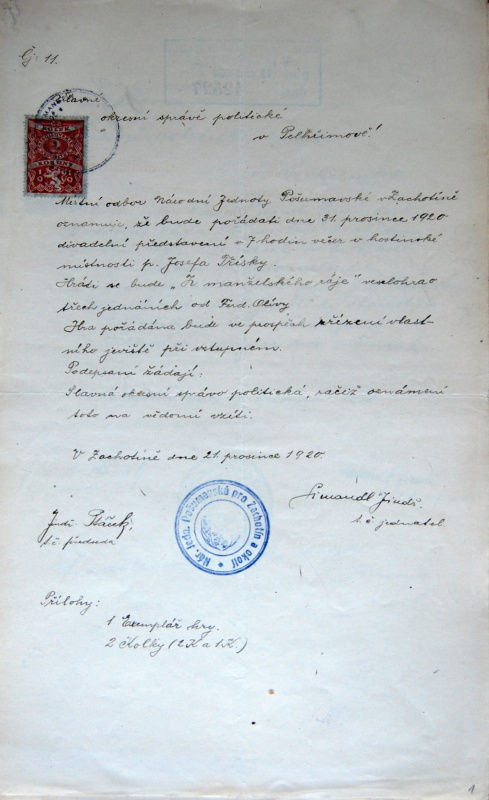 Čj 11.
Slavné
okresní správě politické
v Pelhřimově!
Místní odbor Národní Jednoty Pošumavské v Zachotíně
oznamuje, že bude pořádati dne 31. prosince 1920
divadelní představení o 7 hodin večer v hostinské
místnosti p. Josefa Třísky.
Hráti se bude „Z manželského ráje" veselohra o
třech jednáních od Ferd. Olivy
Hra pořádána bude ve prospěch zřízení vlast-
ního jeviště při vstupném.
Podepsaní žádají:
Slavná okresní správo politická, račiž oznámení
toto na vědomí vzíti.
V Zachotíně dne 21. prosince 1920.
Simandl Jindř.
t. č. jednatel
t. č. předseda
Nár. Jedn. Pošumavská pro Zachotín a okolí
Přílohy:
1 Exemplář hry.
2 Kolky (2 K a 1 K.)
1